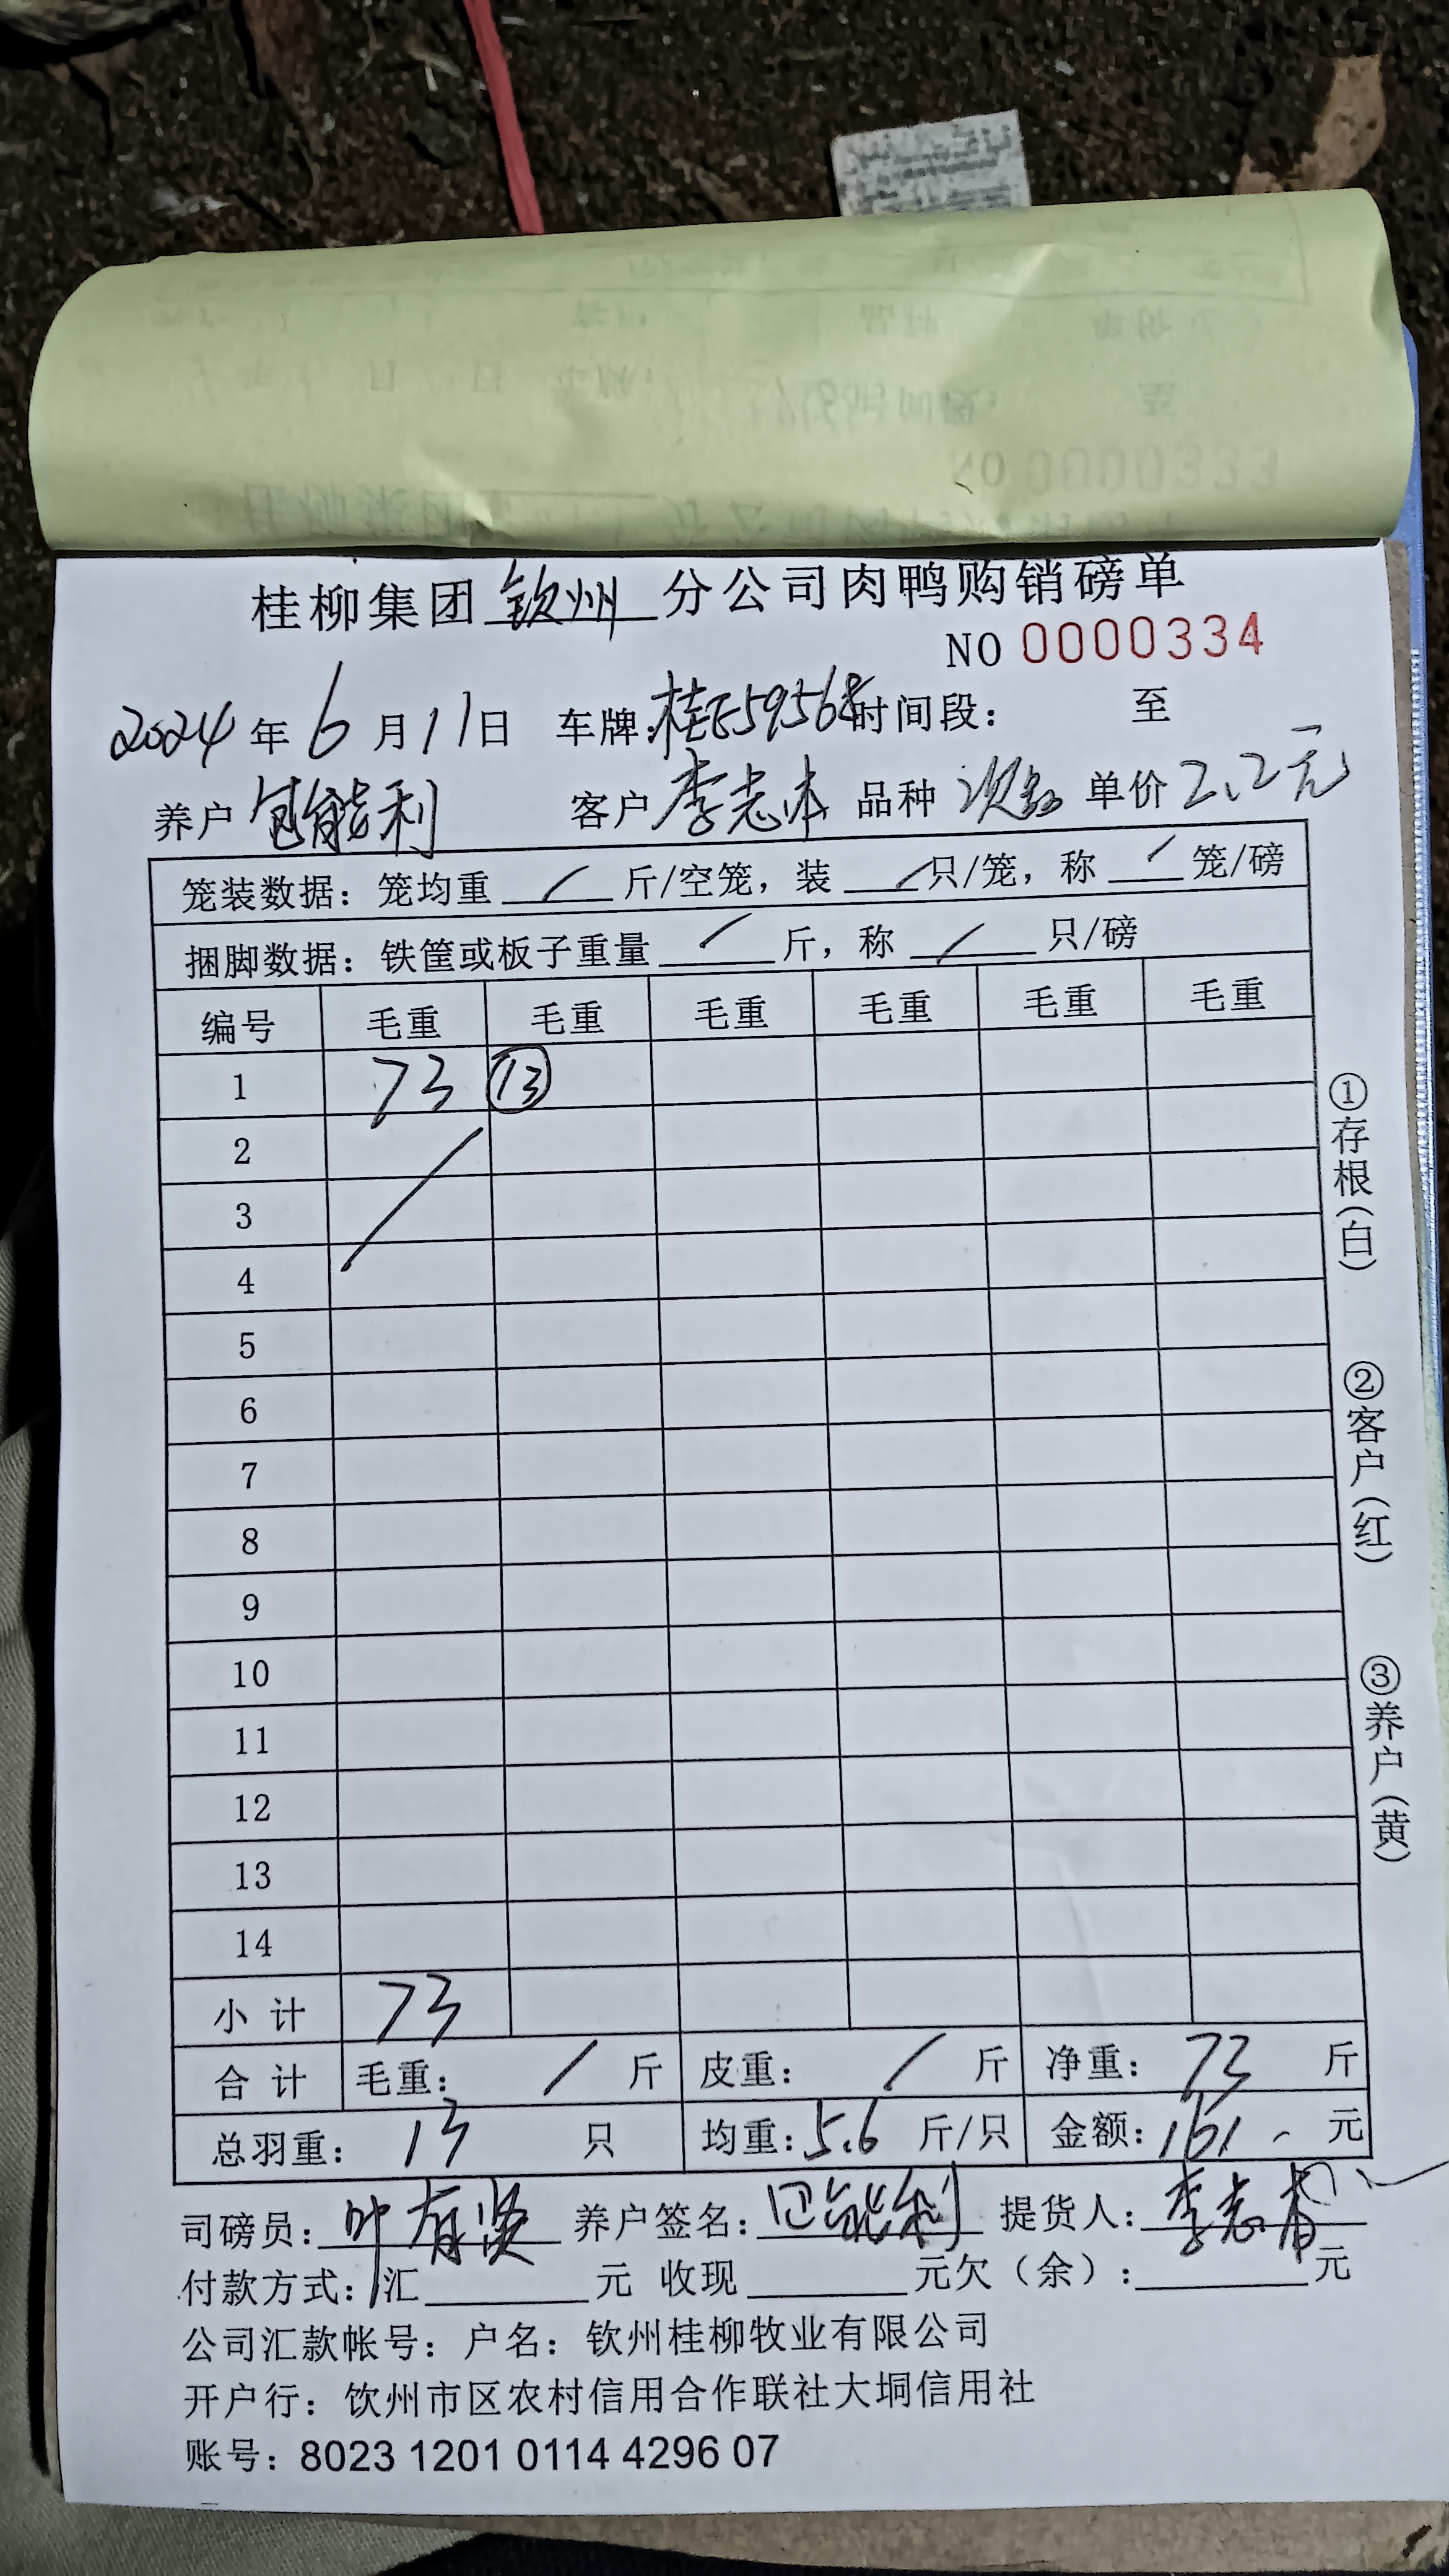 桂柳集团钦州分公司肉鸭购销磅单
NO 0000334
2024年6月11日 车牌:桂E59568时间段: 至
养户 能利 客户 李志本 品种 次 单价 2.2元
笼装数据: 笼均重 / 斤/空笼, 装 / 只/笼, 称 / 笼/磅
捆脚数据: 铁筐或板子重量 / 斤, 称 / 只/磅
编号 毛重 毛重 毛重 毛重 毛重 毛重
1 73 ⑬
2
3
4
5
6
7
8
9
10
11
12
13
14
小计 73
合计 毛重: / 斤 皮重: / 斤 净重: 73 斤
总羽重: 13 只 均重: 5.6 斤/只 金额: 161 元
司磅员: 叶有贤 养户签名: 能利 提货人: 李志
付款方式: 汇 元 收现 元欠(余): 元
公司汇款帐号: 户名: 钦州桂柳牧业有限公司
开户行: 钦州市区农村信用合作联社大垌信用社
账号: 8023 1201 0114 4296 07
①存根(白)
②客户(红)
③养户(黄)
NO 0000333